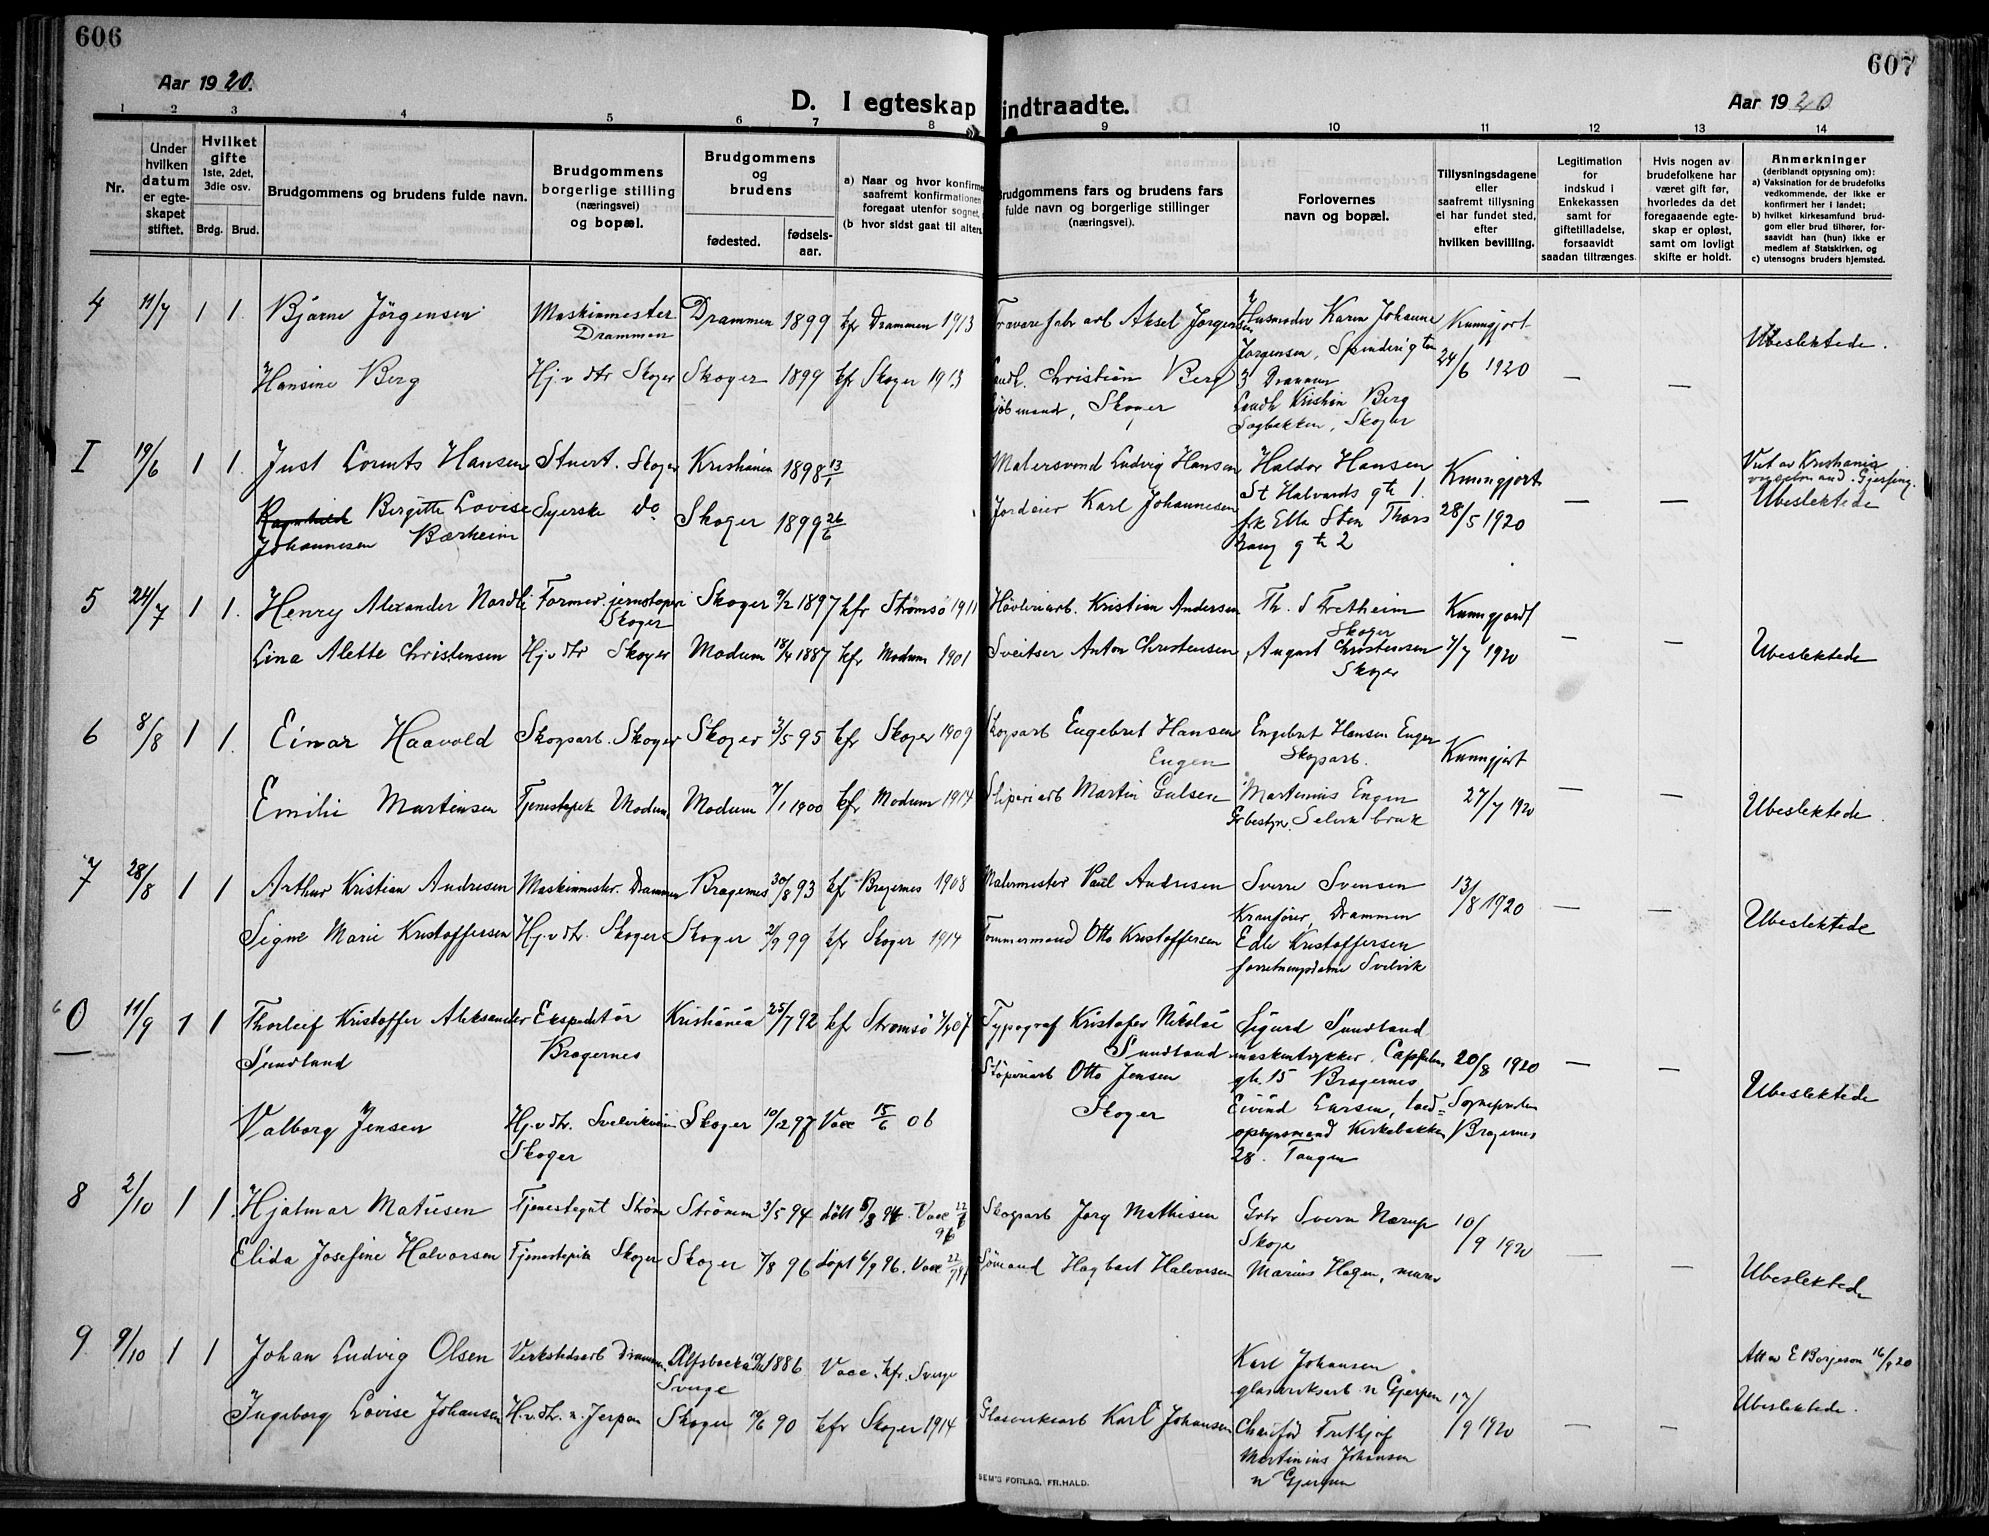 606
607
Aar 1920.
Aar 1920
D. I egteskap indtraadte.
1 2 3 4 5 6 7 8 9 10 11 12 13 14
Nr.
Under hvilken datum er egteskapet stiftet.
Hvilket gifte 1ste, 2det, 3die osv.
Brdg. Brud.
Brudgommens og brudens fulde navn.
Brudgommens borgerlige stilling (næringsvei) og bopæl.
Brudgommens og brudens
fødested. fødsels-aar.
a) Naar og hvor konfirme
saafremt konfirmationen
foregaat utenfor sognet,
(b hvor sidst gaat til alters.
Brudgommens fars og brudens fars
fulde navn og borgerlige stillinger
(næringsvei).
Forlovernes
navn og bopæl.
Tillysningsdagene
eller
saafremt tillysning
ei har fundet sted,
efter
hvilken bevilling.
Legitimation
for
indskud i
Enkekassen
samt for
giftetilladelse,
forsaavidt
saadan tiltrænges.
Hvis nogen av
brudefolkene har
været gift før,
hvorledes da det
foregaaende egte-
skap er opløst,
samt om lovligt
skifte er holdt.
Anmerkninger
(deriblandt opjysning om):
a) Vaksination for de brudefolks
vedkommende, der ikke er
konfirmert her i landet;
b) hvilket kirkesamfund brud-
gom eller brud tilhører, for-
saavidt han (hun) ikke er
medlem af Statskirken, og
c) utensogns bruders hjemsted.
4 11/7 1 1. Bjarne Jörgensen Maskinmester Drammen Drammen 1899 kfr Drammen 1913 Aksel Jorgensen Husmoder Karen Johanne Jorgensen, Kunngjort 24/6 1920 Ubeslektede.
Hansine Berg Hj.v dtr Skoger Skoger 1899 kfr Skoger 1913 Christian Berg Skoger Drammen Kristian Berg Sagbakken, Skoger — —
I 19/6 1 1. Just Lorents Hansen Stuert. Skoger Kristiania 1898 13/1 Malersvend Ludvig Hansen Haldor Hansen St Halvards gt 1. Kunngjort 28/5 1920 — — Ubeslektede
Ragnhild Birgitte Lovise Johannesen Bærheim Syerske do Skoger 1899 26/6 Jordeier Karl Johannesen frk Ella Sten Thors haug gt 2
5 24/7 1 1. Henry Alexander Nordli Former. jernstøperi Skoger Skoger 9/2 1897 kfr Strømsö 1911 Høvleriarb. Kristian Andersen Th. S Fretheim Skoger Kunngjordt 7/7 1920 — — Ubeslektede
Lina Alette Christensen Hj.v dtr Skoger Modum 18/4 1887 kfr Modum 1901 Sveitser Anton Christensen August Christensen Skoger
6 8/8 1 1. Einar Haavold Skogsarb. Skoger Skoger 3/5 95 kfr Skoger 1909 Skogsarb Engebret Hansen Engen Engebret Hansen Engen Skogsarb. Kunngjort 27/7 1920 — — Ubeslektede.
Emilie Martinsen Tjenestepik Modum Modum 7/1 1900 kfr Modum 1914 Sliperiarb Martin Gulsen Martinius Engen Grbestyr. Selvik bruk
7 28/8 1 1 Arthur Kristian Andresen Maskinmester. Drammen Bragernes 30/8 93 kf Bragernes 1908 Malermester Paul Andresen Sverre Svensen Kranfører, Drammen 13/8 1920 — — Ubeslektede
Signe Marie Kristoffersen Hj.v dtr. Skoger Skoger 2/9 99 kfr Skoger 1914 Tømmermand Otto Kristoffersen Edle Kristoffersen forretningsdame Svelvik
0 11/9 1 1 Thorleif Kristoffer Aleksander Sundland Ekspeditör Bragernes Kristiania 25/7 92 kfr Strømsö 7/4 07 Typograf Kristofer Nikolai Sundland Sigurd Sundland maskintrykker, gt. 15 Bragernes 20/8 1920 — — Ubeslektede
Valborg Jensen Hj.v dtr. Svelvikveien Skoger Skoger 10/12 97 Vacc 15/6 06 Støperiarb Otto Jensen Skoger Eivind Larsen, lods=opsynsmand Kirkebakken 28. Tangen Sogneprsten Bragernes
8 2/10 1 1. Hjalmar Matisen Tjenestegut Strøm Strömm 3/5 94 döbt 5/8 94. Vacc 22/6 96 Skogsarb Jorg Mathisen Gbr Svern Nærup Skoge 10/9 1920 — — Ubeslektede
Elida Josefine Halvorsen Tjenestepik Skoger Skoger 7/8 96 döpt 6/9 96. Vacc Sømand Hagbart Halvorsen Marius Hagen, murer
9 9/10 1 1 Johan Ludvig Olsen Verkstedsarb Drammen Sverge 1886 Vacc. kfr. Sverge Karl Johansen glasverksarb n Gjerpen 17/9 1920 — — Att av E Borjeson 16/9 20
Ingeborg Lovise Johansen H.v.dtr. n. Jerpen Skoger 10/6 90 kfr Skoger 1914 Glasverksarb Karl Johansen Chaufför Frithjof Martinius Johansen n Gjerpen Ubeslektede.
SEM'S FORLAG. FR. HALD.